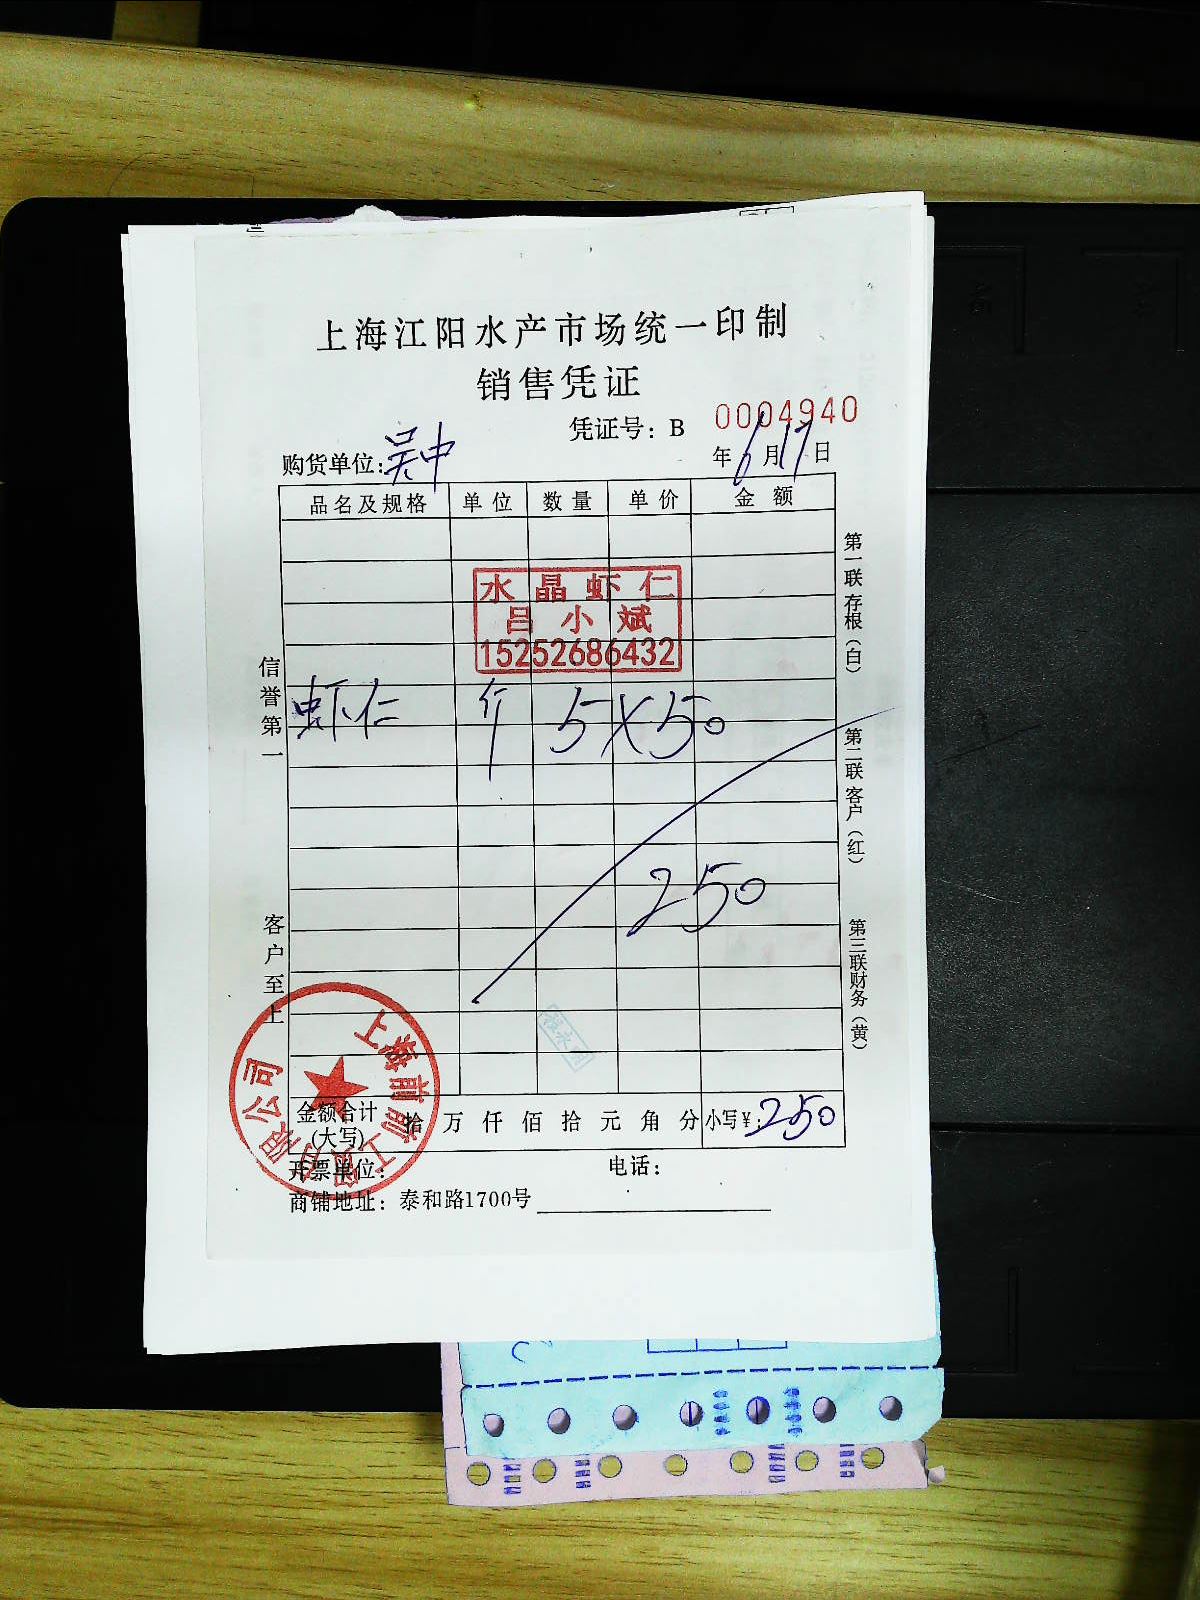 上海江阳水产市场统一印制
销售凭证
凭证号：B 0004940
购货单位：吴中 年6月17日
品名及规格 单位 数量 单价 金额
水晶虾仁
吕小斌
15252686432
虾仁 斤 5×50
250
金额合计(大写) 拾万仟佰拾元角分 小写￥：250
开票单位： 电话：
商铺地址：泰和路1700号
信誉第一
客户至上
第一联存根（白）
第二联客户（红）
第三联财务（黄）
上海前前工贸有限公司